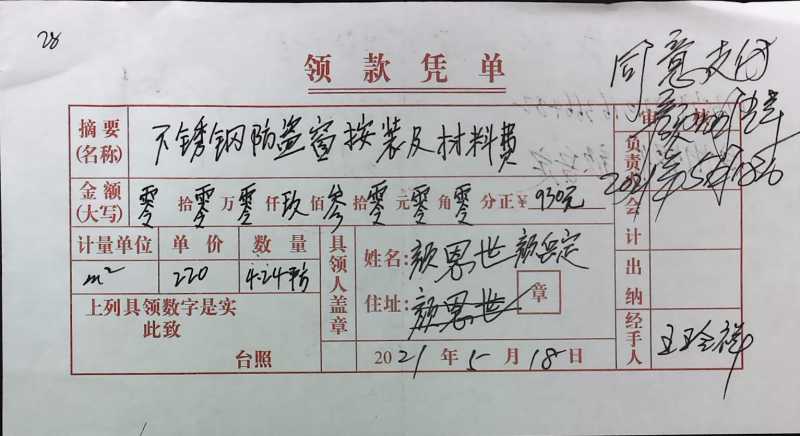 28
领款凭单
同意支付
2021年5月18日
摘要(名称) 不锈钢防盗窗按装及材料费
审核
金额(大写) 零拾零万零仟玖佰参拾零元零角零分正¥ 930元
负责人
会计
计量单位 单价 数量
m² 220 4.24平方
具领人盖章
姓名: 颜恩世
住址: 颜恩世
章
出纳
上列具领数字是实
此致
台照
2021年5月18日
经手人